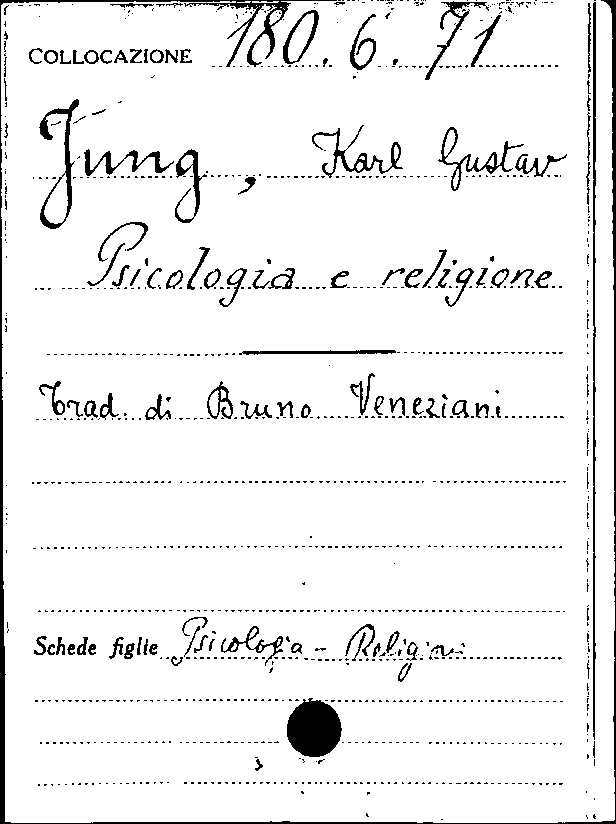 COLLOCAZIONE 180.6.71
Jung, Karl Gustav
Psicologia e religione
Trad. di Bruno Veneziani
Schede figlie Psicologia - Religioni